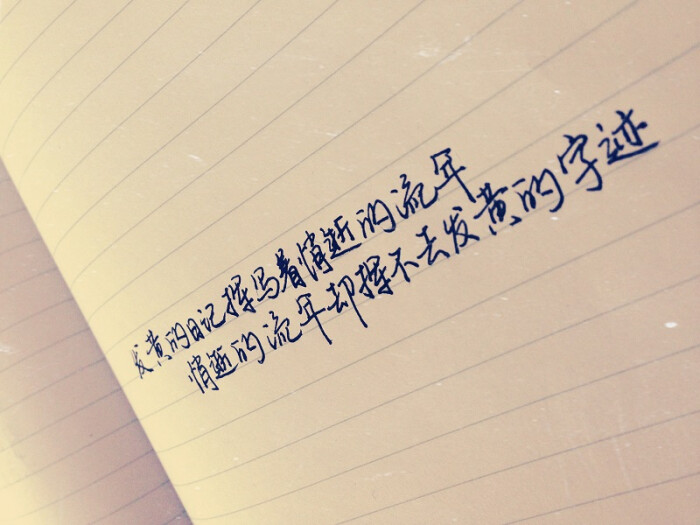 发黄的日记挥写着悄逝的流年
悄逝的流年却挥不去发黄的字迹